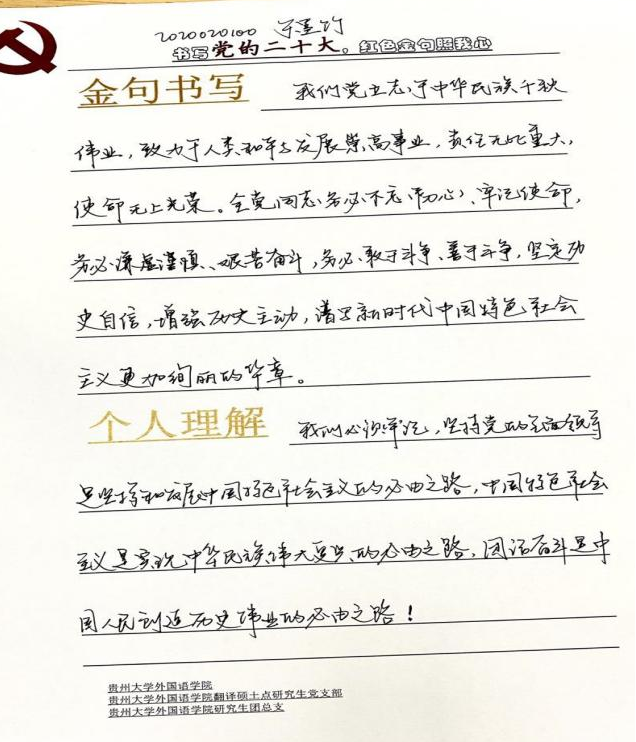 2020020100
书写党的二十大，红色金句照我心
金句书写 我们党立志于中华民族千秋
伟业，致力于人类和平与发展崇高事业，责任无比重大，
使命无上光荣。全党同志务必不忘初心、牢记使命，
务必谦虚谨慎、艰苦奋斗，务必敢于斗争、善于斗争，坚定历
史自信，增强历史主动，谱写新时代中国特色社会
主义更加绚丽的华章。
个人理解 我们必须牢记，坚持党的全面领导
是坚持和发展中国特色社会主义的必由之路，中国特色社会
主义是实现中华民族伟大复兴的必由之路，团结奋斗是中
国人民创造历史伟业的必由之路！
贵州大学外国语学院
贵州大学外国语学院翻译硕士点研究生党支部
贵州大学外国语学院研究生团总支